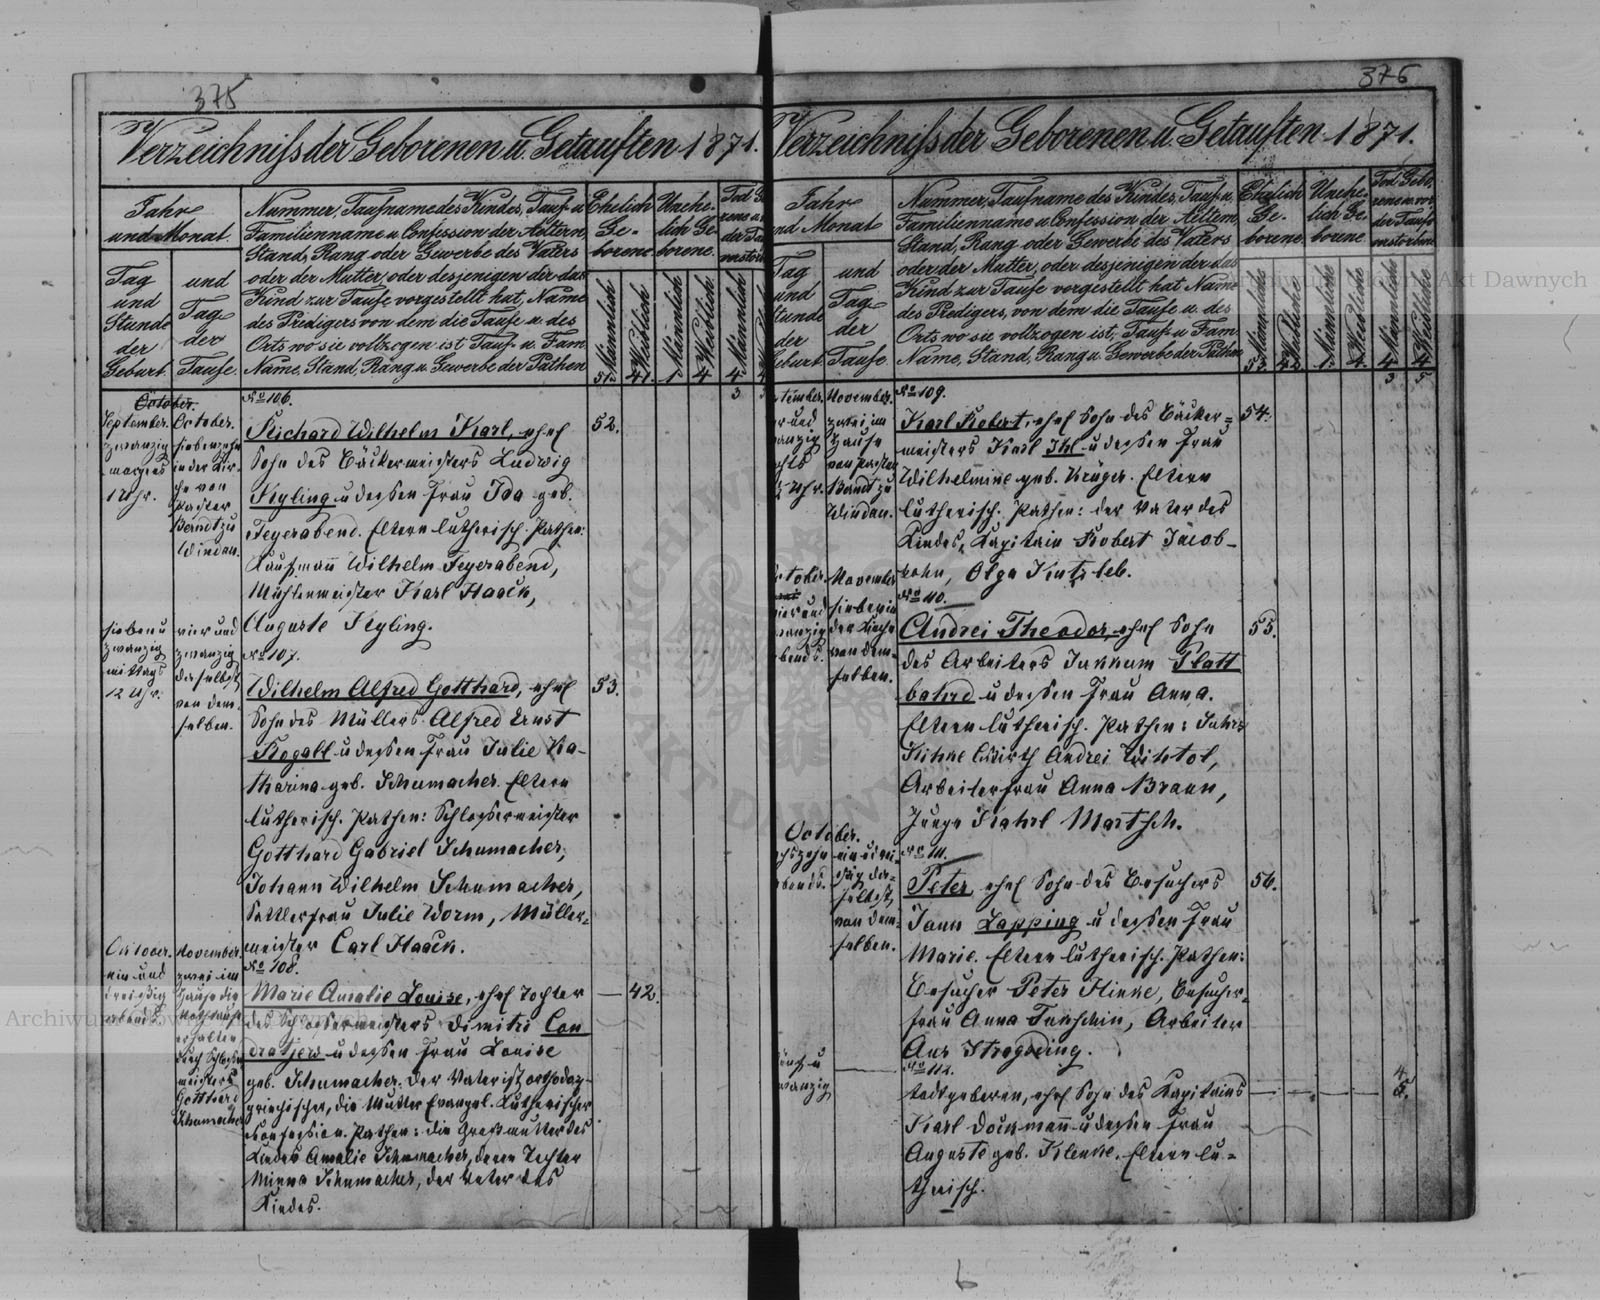 375
Verzeichniß der Geborenen u. Getauften 1871.
Jahr
und Monat.
Tag
und
Stunde
der
Geburt.
und
Tag
der
Taufe.
Nummer, Taufname des Kindes, Tauf- u.
Familienname u. Confession der Aeltern,
Stand, Rang oder Gewerbe des Vaters
oder der Mutter, oder desjenigen der das
Kind zur Taufe vorgestellt hat, Name
des Predigers von dem die Taufe u. des
Orts wo sie vollzogen ist, Tauf- u. Fam.
Name, Stand, Rang u. Gewerbe der Pathen
Ehelich
Ge-
borene.
Unehe-
lich Ge-
borene.
Männlich
Weiblich
Männlich
Weiblich
Männlich
51. 41. 1 4 4
3
October.
September.
zwanzig
morgens
1 Uhr.
October.
siebenzehn
in der Kir-
che von
Pastor
Berndt zu
Windau.
No 106.
Richard Wilhelm Karl, ehel
Sohn des Bäckermeisters Ludwig
Keyling u dessen Frau Ida geb.
Feyerabend. Eltern lutherisch. Pathen:
Kaufmann Wilhelm Feyerabend,
Mühlenmeister Karl Haack,
Auguste Keyling.
52.
sieben u
zwanzig
mittags
12 Uhr.
vier und
zwanzig
daselbst
von dem-
selben.
No 107.
Wilhelm Alfred Gotthard, ehel
Sohn des Müllers Alfred Ernst
Rogall u dessen Frau Julie Ka-
tharina geb. Schumacher. Eltern
lutherisch. Pathen: Schlossermeister
Gotthard Gabriel Schumacher,
Johann Wilhelm Schumacher,
Sattlerfrau Julie Worm, Müller-
meister Carl Haack.
53.
October.
ein und
dreißig
abends
November.
zwei im
Hause die
Nothtaufe
erhalten
durch Schlosser
meister
Gotthard
Schumacher
No 108.
Marie Amalie Louise, ehel Tochter
des Schlossermeisters Dimitri Con
dratjew u dessen Frau Louise
geb. Schumacher. Der Vater ist orthodox-
griechischer, die Mutter Evangel. Lutherischer
Confession. Pathen: die Großmutter des
Kindes Amalie Schumacher, deren Tochter
Minna Schumacher, der Vater des
Kindes.
42.
376
Verzeichniß der Geborenen u. Getauften 1871.
Jahr
und Monat
Tag
und
Stunde
der
Geburt.
und
Tag
der
Taufe.
Nummer, Taufname des Kindes, Tauf- u.
Familienname u. Confession der Aeltern,
Stand, Rang oder Gewerbe des Vaters
oder der Mutter, oder desjenigen der das
Kind zur Taufe vorgestellt hat, Name
des Predigers, von dem die Taufe u. des
Orts wo sie vollzogen ist, Tauf- u. Fam.
Name, Stand, Rang u. Gewerbe der Pathen
Ehelich
Ge-
borene.
Unehe-
lich Ge-
borene
Todt Gebo-
rene u. vor
der Taufe
verstorbene
Männliche
Weibliche
Männlich
Weibliche
Männliche
Weibliche
53. 42 1. 4. 4 4
3 5
November.
zwei im
Hause
von Pastor
Berndt zu
Windau.
No 109.
Karl Robert, ehel Sohn des Bäcker-
meisters Karl Ihl u dessen Frau
Wilhelmine geb. Krüger. Eltern
lutherisch. Pathen: der Vater des
Kindes, Kapitain Robert Jacob-
sohn, Olga Kintzleb.
54.
November
sieben in
der Kirche
von dem-
selben.
No 110.
Andrei Theodor, ehel Sohn
des Arbeiters Jannum Platt
bahrd u dessen Frau Anna.
Eltern lutherisch. Pathen:
Wirth Andrei Wihtol,
Arbeiterfrau Anna Braun,
Junge Kahrl Martsch.
55.
October.
ein u drei-
ßig da-
selbst,
von dem-
selben.
No 111.
Peter, ehel Sohn des Besuchers
Jann Lapping u dessen Frau
Marie. Eltern lutherisch. Pathen:
Besucher Peter Slinke, Besucher-
frau Anna Tunschin, Arbeiter
Ans Strogoding.
56.
No 112.
todtgeboren, ehel Sohn des Kapitains
Karl Dockmann u dessen Frau
Auguste geb. Klenke. Eltern lu-
therisch.
4
5.
6
Archiwum Główne Akt Dawnych
Archiwum Główne Akt Dawnych